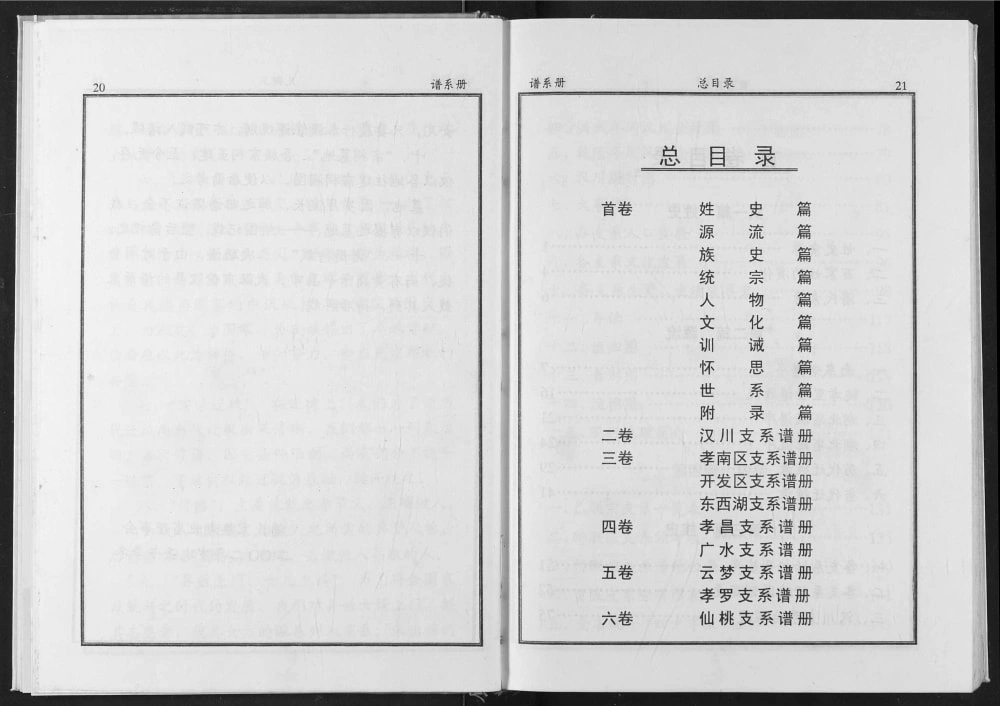 20
谱系册
谱系册
总目录
21
总目录
首卷 姓史篇
源流篇
族史篇
统宗篇
人物篇
文化篇
训诫篇
怀思篇
世系篇
附录篇
二卷 汉川支系谱册
三卷 孝南区支系谱册
开发区支系谱册
东西湖支系谱册
四卷 孝昌支系谱册
广水支系谱册
五卷 云梦支系谱册
孝罗支系谱册
六卷 仙桃支系谱册